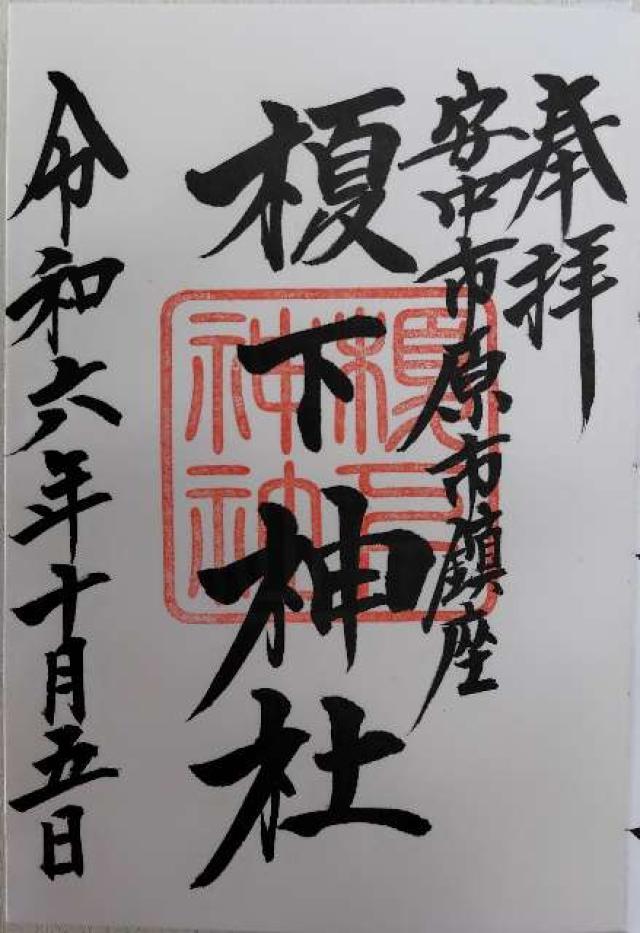 奉拝
安中市原市鎮座
榎下神社
榎下神社
令和六年十月五日